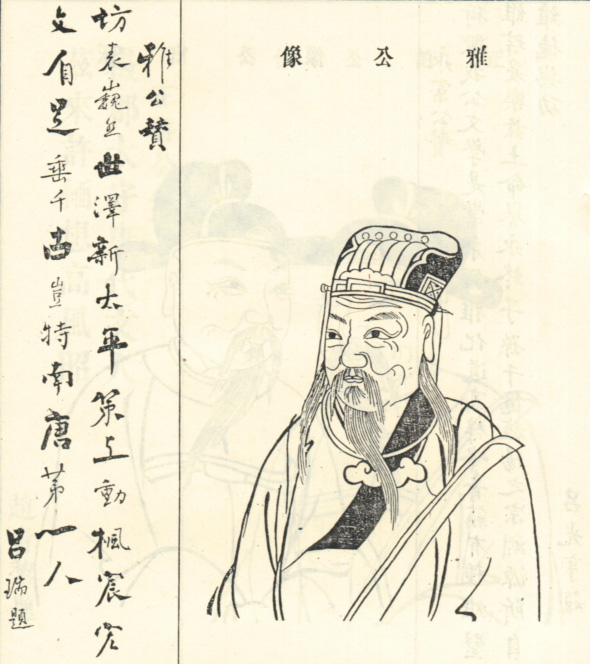 雅公像
雅公贊
坊表巍然世澤新太平策上動楓宸宏
文自足垂千古豈特南唐第一人
呂瑞題